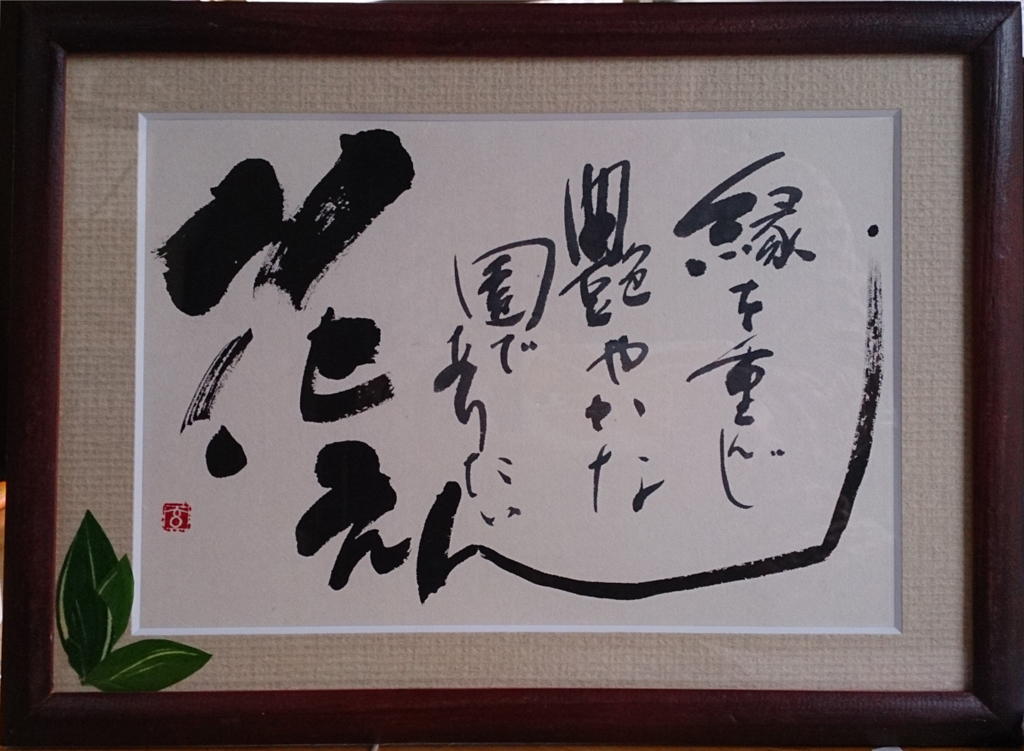 縁を重んじ
艶やかな
園でありたい
花えん